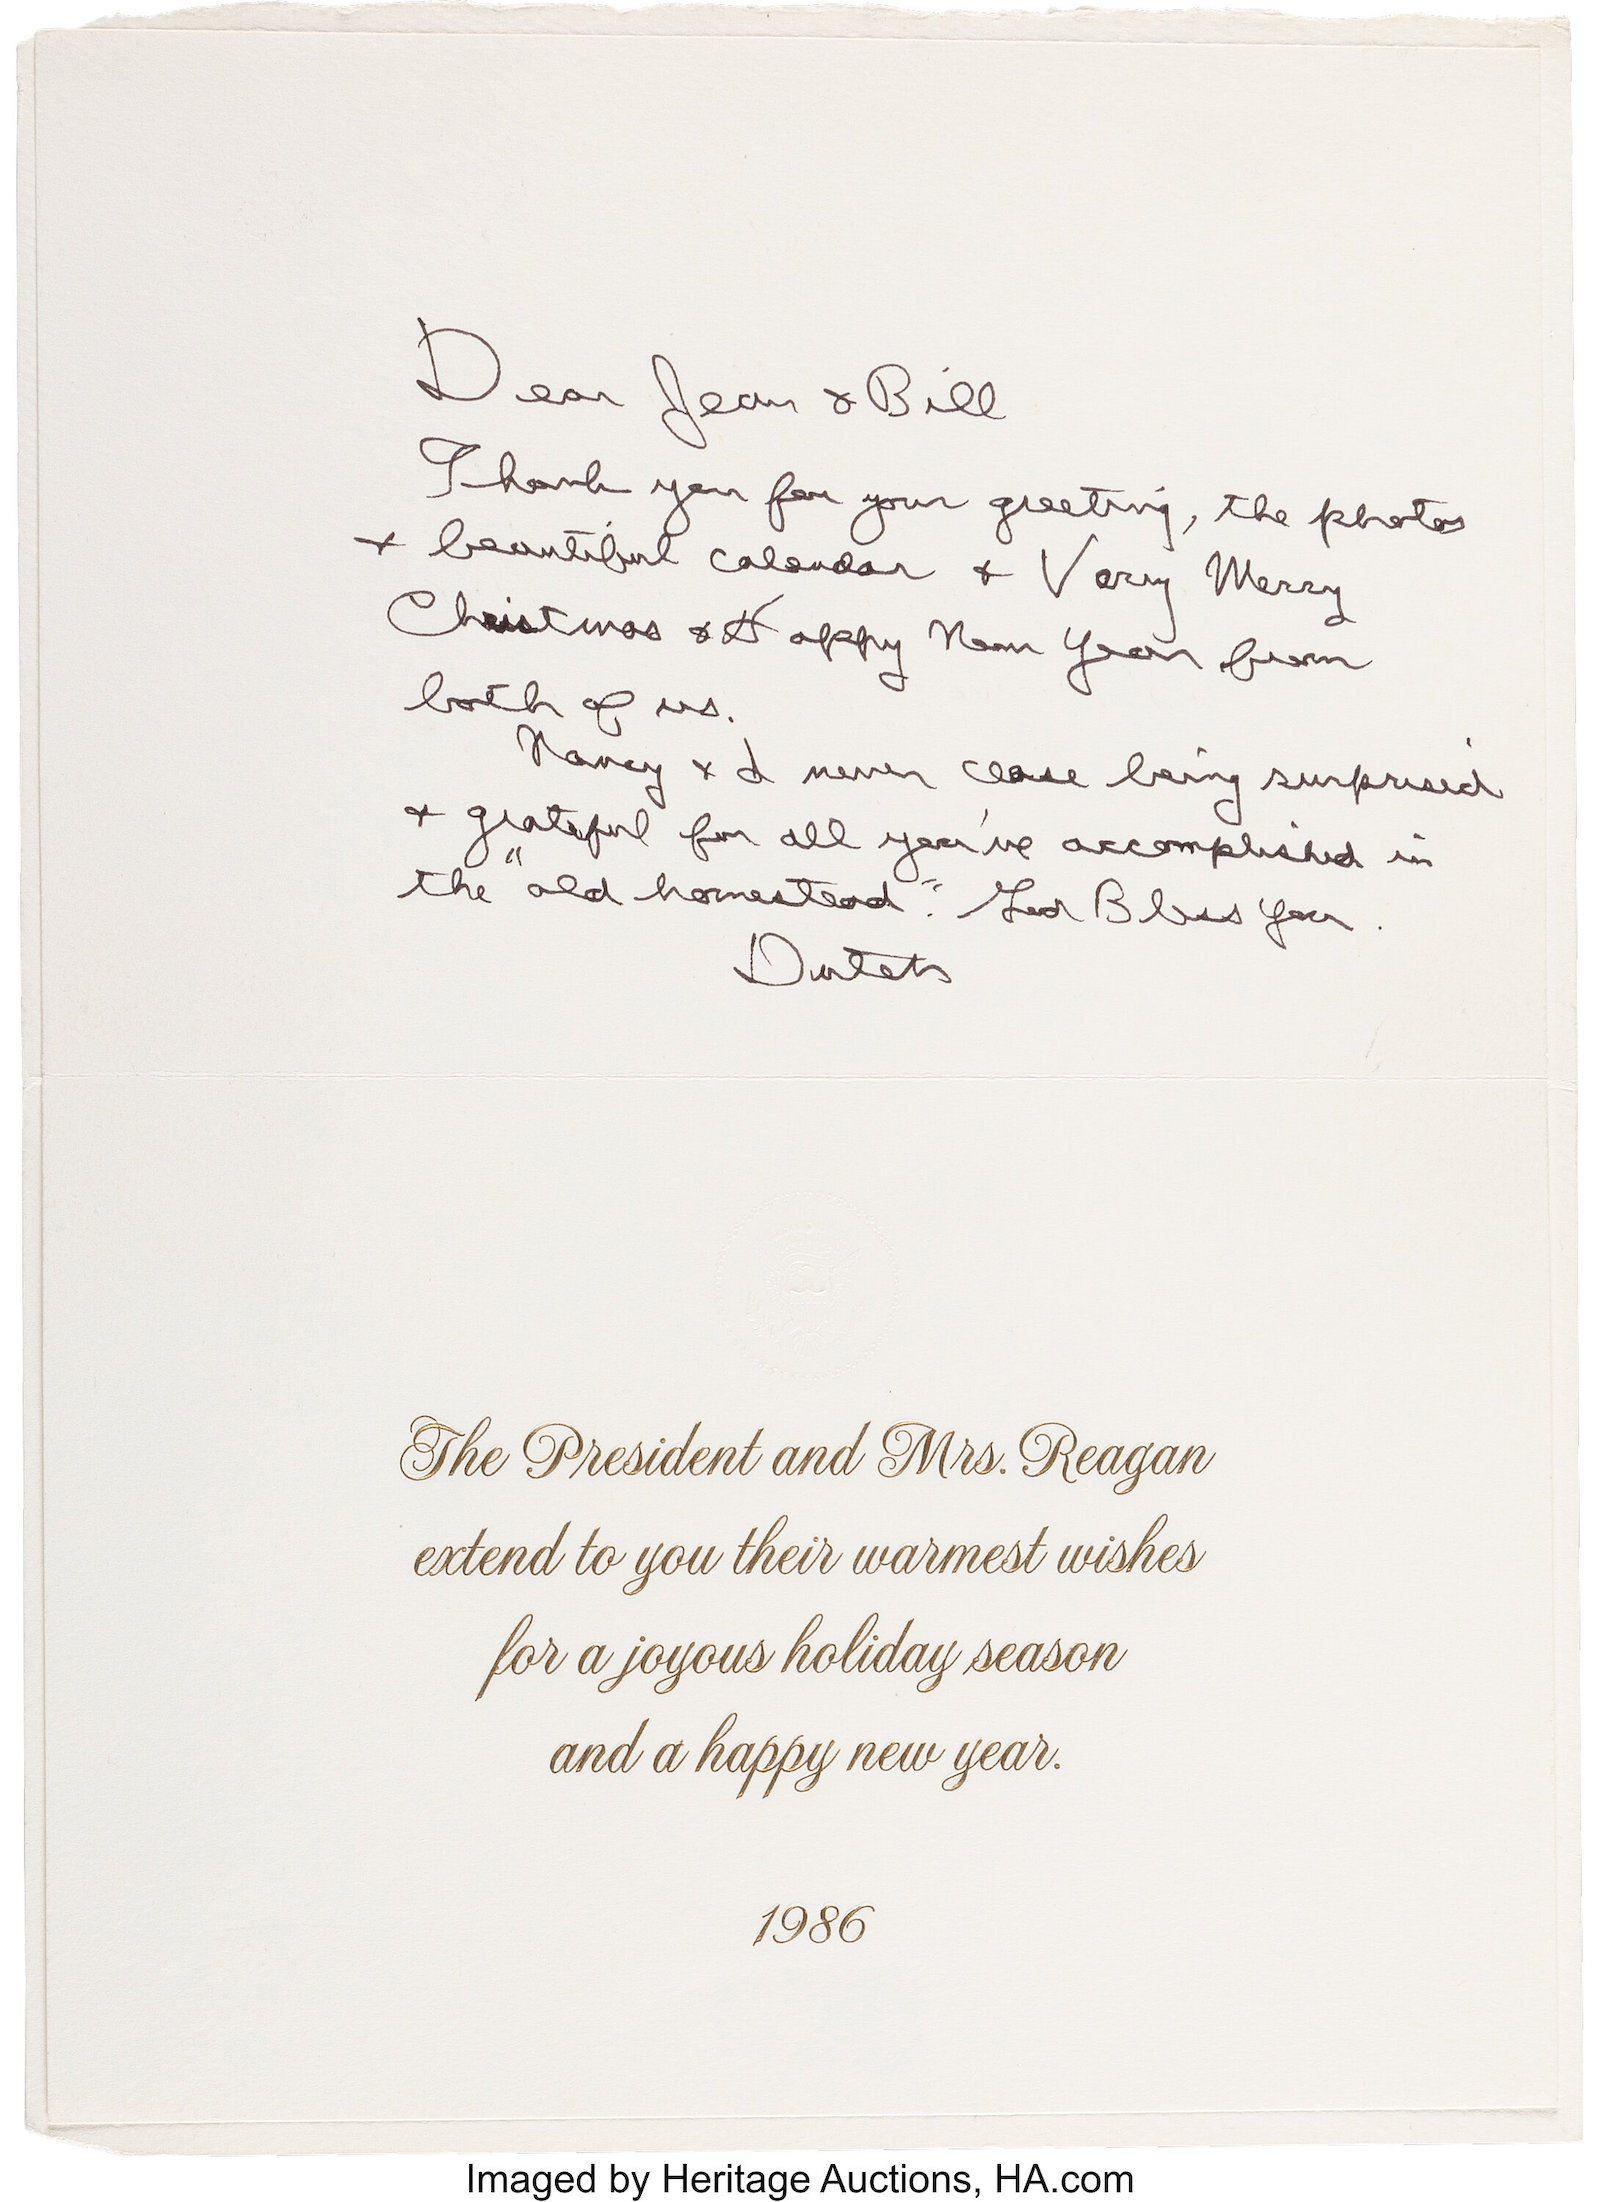 Dear Jean & Bill
Thank you for your greeting, the photos
& beautiful calendar & Very Merry
Christmas & Happy New Year from
both of us.
Nancy & I never cease being surprised
& grateful for all you've accomplished in
the "old homestead". God Bless You.
Dutch
The President and Mrs. Reagan
extend to you their warmest wishes
for a joyous holiday season
and a happy new year.
1986
Imaged by Heritage Auctions, HA.com